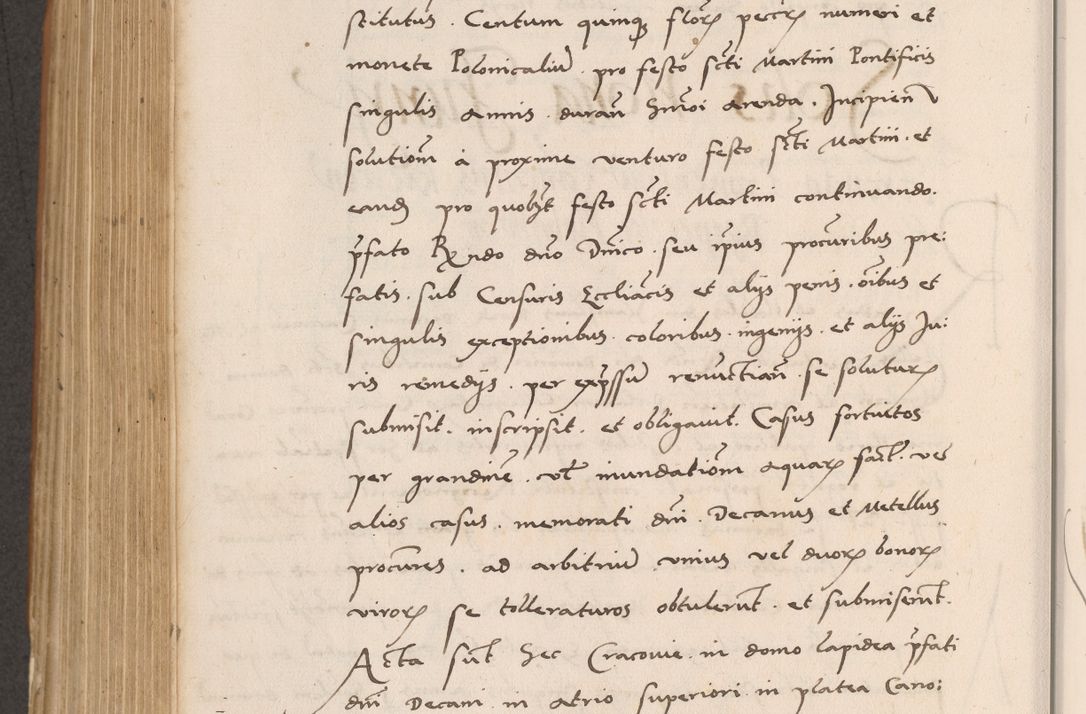 stitutus. Centum quinq florꝝ peccꝝ numeri et
monete Polonicaliũ pro festo scti Martini Pontificis
singulis annis duran hmoi arenda. Incipien
solutiom a proxime venturo festo scti Martini et
eand pro quobt festo scti Martini continuando.
pfato Rndo dno Dnico seu ipius procuribus pre:
fatis. sub Censuris Eccliacis et alijs penis. oibus et
singulis exceptionibus. coloribus. ingenijs. et alijs Iu:
ris remedijs. per expssũ renunctian. se soluturꝝ
submisit. inscripsit. et obligauit. Casus fortuitos
per grandinẽ. vt inundatiom aquarꝝ fact. vel
alios casus. memorati dni. Decanus et Metellus
procures. ad arbitriũ vnius vel duorꝝ bonorꝝ
virorꝝ se tolleraturos obtulerũt. et submiserũt.
Acta sũt hec Cracouie in domo lapidea pfati
dni Decani in atrio superiori in platea Cano: